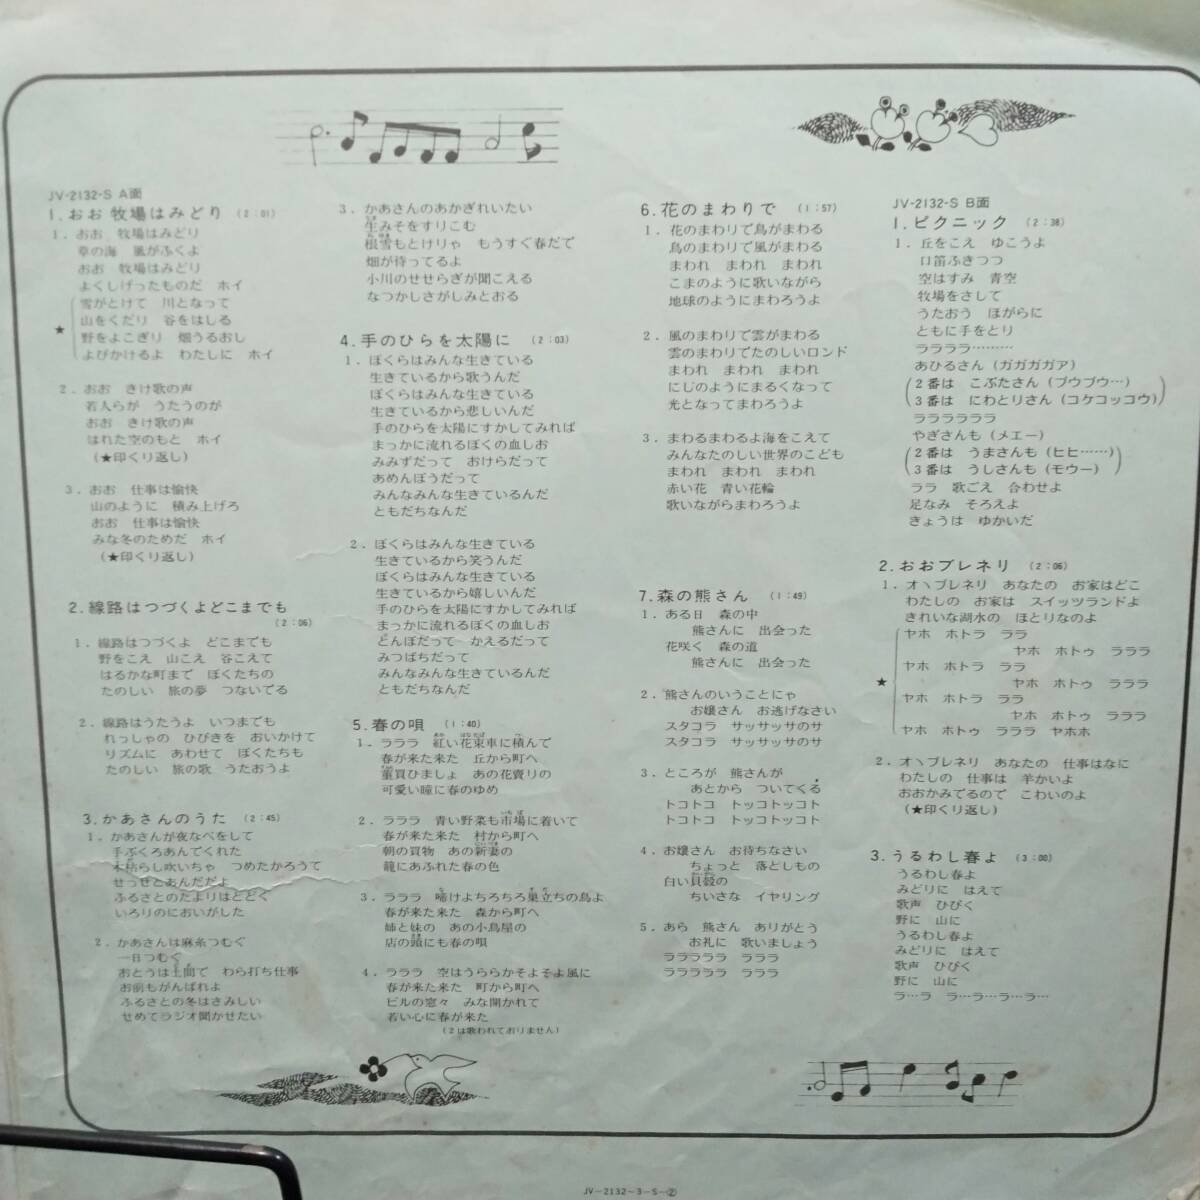 JV-2132-S A面
1. おお 牧場はみどり (2:01)
1. おお 牧場はみどり
草の海 風がふくよ
おお 牧場はみどり
よくしげったものだ ホイ
雪がとけて 川となって
★ 山をくだり 谷をはしる
野をよこぎり 畑うるおし
よびかけるよ わたしに ホイ
2. おお きけ歌の声
若人らが うたうのが
おお きけ歌の声
はれた空のもと ホイ
(★印くり返し)
3. おお 仕事は愉快
山のように 積み上げろ
おお 仕事は愉快
みな冬のためだ ホイ
(★印くり返し)
2. 線路はつづくよどこまでも
(2:06)
1. 線路はつづくよ どこまでも
野をこえ 山こえ 谷こえて
はるかな町まで ぼくたちの
たのしい 旅の夢 つないでる
2. 線路はうたうよ いつまでも
れっしゃの ひびきを おいかけて
リズムに あわせて ぼくたちも
たのしい 旅の歌 うたおうよ
3. かあさんのうた (2:45)
1. かあさんが夜なべをして
手ぶくろあんでくれた
木枯らし吹いちゃ つめたかろうて
せっせとあんだだよ
ふるさとのたよりはとどく
いろりのにおいがした
2. かあさんは麻糸つむぐ
一日つむぐ
おとうは土間で わら打ち仕事
お前もがんばれよ
ふるさとの冬はさみしい
せめてラジオ聞かせたい
3. かあさんのあかぎれいたい
生みそをすりこむ
根雪もとけりゃ もうすぐ春だで
畑が待ってるよ
小川のせせらぎが聞こえる
なつかしさがしみとおる
4. 手のひらを太陽に (2:03)
1. ぼくらはみんな生きている
生きているから歌うんだ
ぼくらはみんな生きている
生きているから悲しいんだ
手のひらを太陽にすかしてみれば
まっかに流れるぼくの血しお
みみずだって おけらだって
あめんぼうだって
みんなみんな生きているんだ
ともだちなんだ
2. ぼくらはみんな生きている
生きているから笑うんだ
ぼくらはみんな生きている
生きているから嬉しいんだ
手のひらを太陽にすかしてみれば
まっかに流れるぼくの血しお
とんぼだって かえるだって
みつばちだって
みんなみんな生きているんだ
ともだちなんだ
5. 春の唄 (1:40)
1. ラララ 紅い花束車に積んで
春が来た来た 丘から町へ
菫買いましょ あの花賣りの
可愛い瞳に春のゆめ
2. ラララ 青い野菜も市場に着いて
春が来た来た 村から町へ
朝の買物 あの新妻の
籠にあふれた春の色
3. ラララ 啼けよちろちろ巣立ちの鳥よ
春が来た来た 森から町へ
姉と妹の あの小鳥屋の
店の頭にも春の唄
4. ラララ 空はうららかそよそよ風に
春が来た来た 町から町へ
ビルの窓々 みな開かれて
若い心に春が来た
(2は歌われておりません)
6. 花のまわりで (1:57)
1. 花のまわりで鳥がまわる
鳥のまわりで風がまわる
まわれ まわれ まわれ
こまのように歌いながら
地球のようにまわろうよ
2. 風のまわりで雲がまわる
雲のまわりでたのしいロンド
まわれ まわれ まわれ
にじのようにまるくなって
光となってまわろうよ
3. まわるまわるよ海をこえて
みんなたのしい世界のこども
まわれ まわれ まわれ
赤い花 青い花輪
歌いながらまわろうよ
7. 森の熊さん (1:49)
1. ある日 森の中
熊さんに 出会った
花咲く 森の道
熊さんに 出会った
2. 熊さんのいうことにゃ
お嬢さん お逃げなさい
スタコラ サッサッサのサ
スタコラ サッサッサのサ
3. ところが 熊さんが
あとから ついてくる
トコトコ トッコトッコト
トコトコ トッコトッコト
4. お嬢さん お待ちなさい
ちょっと 落としもの
白い貝殻の
ちいさな イヤリング
5. あら 熊さん ありがとう
お礼に 歌いましょう
ラララララ ラララ
ラララララ ラララ
JV-2132-S B面
1. ピクニック (2:38)
1. 丘をこえ ゆこうよ
口笛ふきつつ
空はすみ 青空
牧場をさして
うたおう ほがらに
ともに手をとり
ララララ………
あひるさん (ガガガガア)
(2番は こぶたさん (ブウブウ…)
3番は にわとりさん (コケコッコウ))
ララララララ
やぎさんも (メエー)
(2番は うまさんも (ヒヒ……)
3番は うしさんも (モウー))
ララ 歌ごえ 合わせよ
足なみ そろえよ
きょうは ゆかいだ
2. おおブレネリ (2:06)
1. オヽブレネリ あなたの お家はどこ
わたしの お家は スイッツランドよ
きれいな湖水の ほとりなのよ
ヤホ ホトラ ララ
ヤホ ホトゥ ラララ
ヤホ ホトラ ララ
★ ヤホ ホトゥ ラララ
ヤホ ホトラ ララ
ヤホ ホトゥ ラララ
ヤホ ホトゥ ラララ ヤホホ
2. オヽブレネリ あなたの 仕事はなに
わたしの 仕事は 羊かいよ
おおかみでるので こわいのよ
(★印くり返し)
3. うるわし春よ (3:00)
うるわし春よ
みどりに はえて
歌声 ひびく
野に 山に
うるわし春よ
みどりに はえて
歌声 ひびく
野に 山に
ラ…ラ ラ…ラ…ラ…ラ…
JV-2132~3-S-②